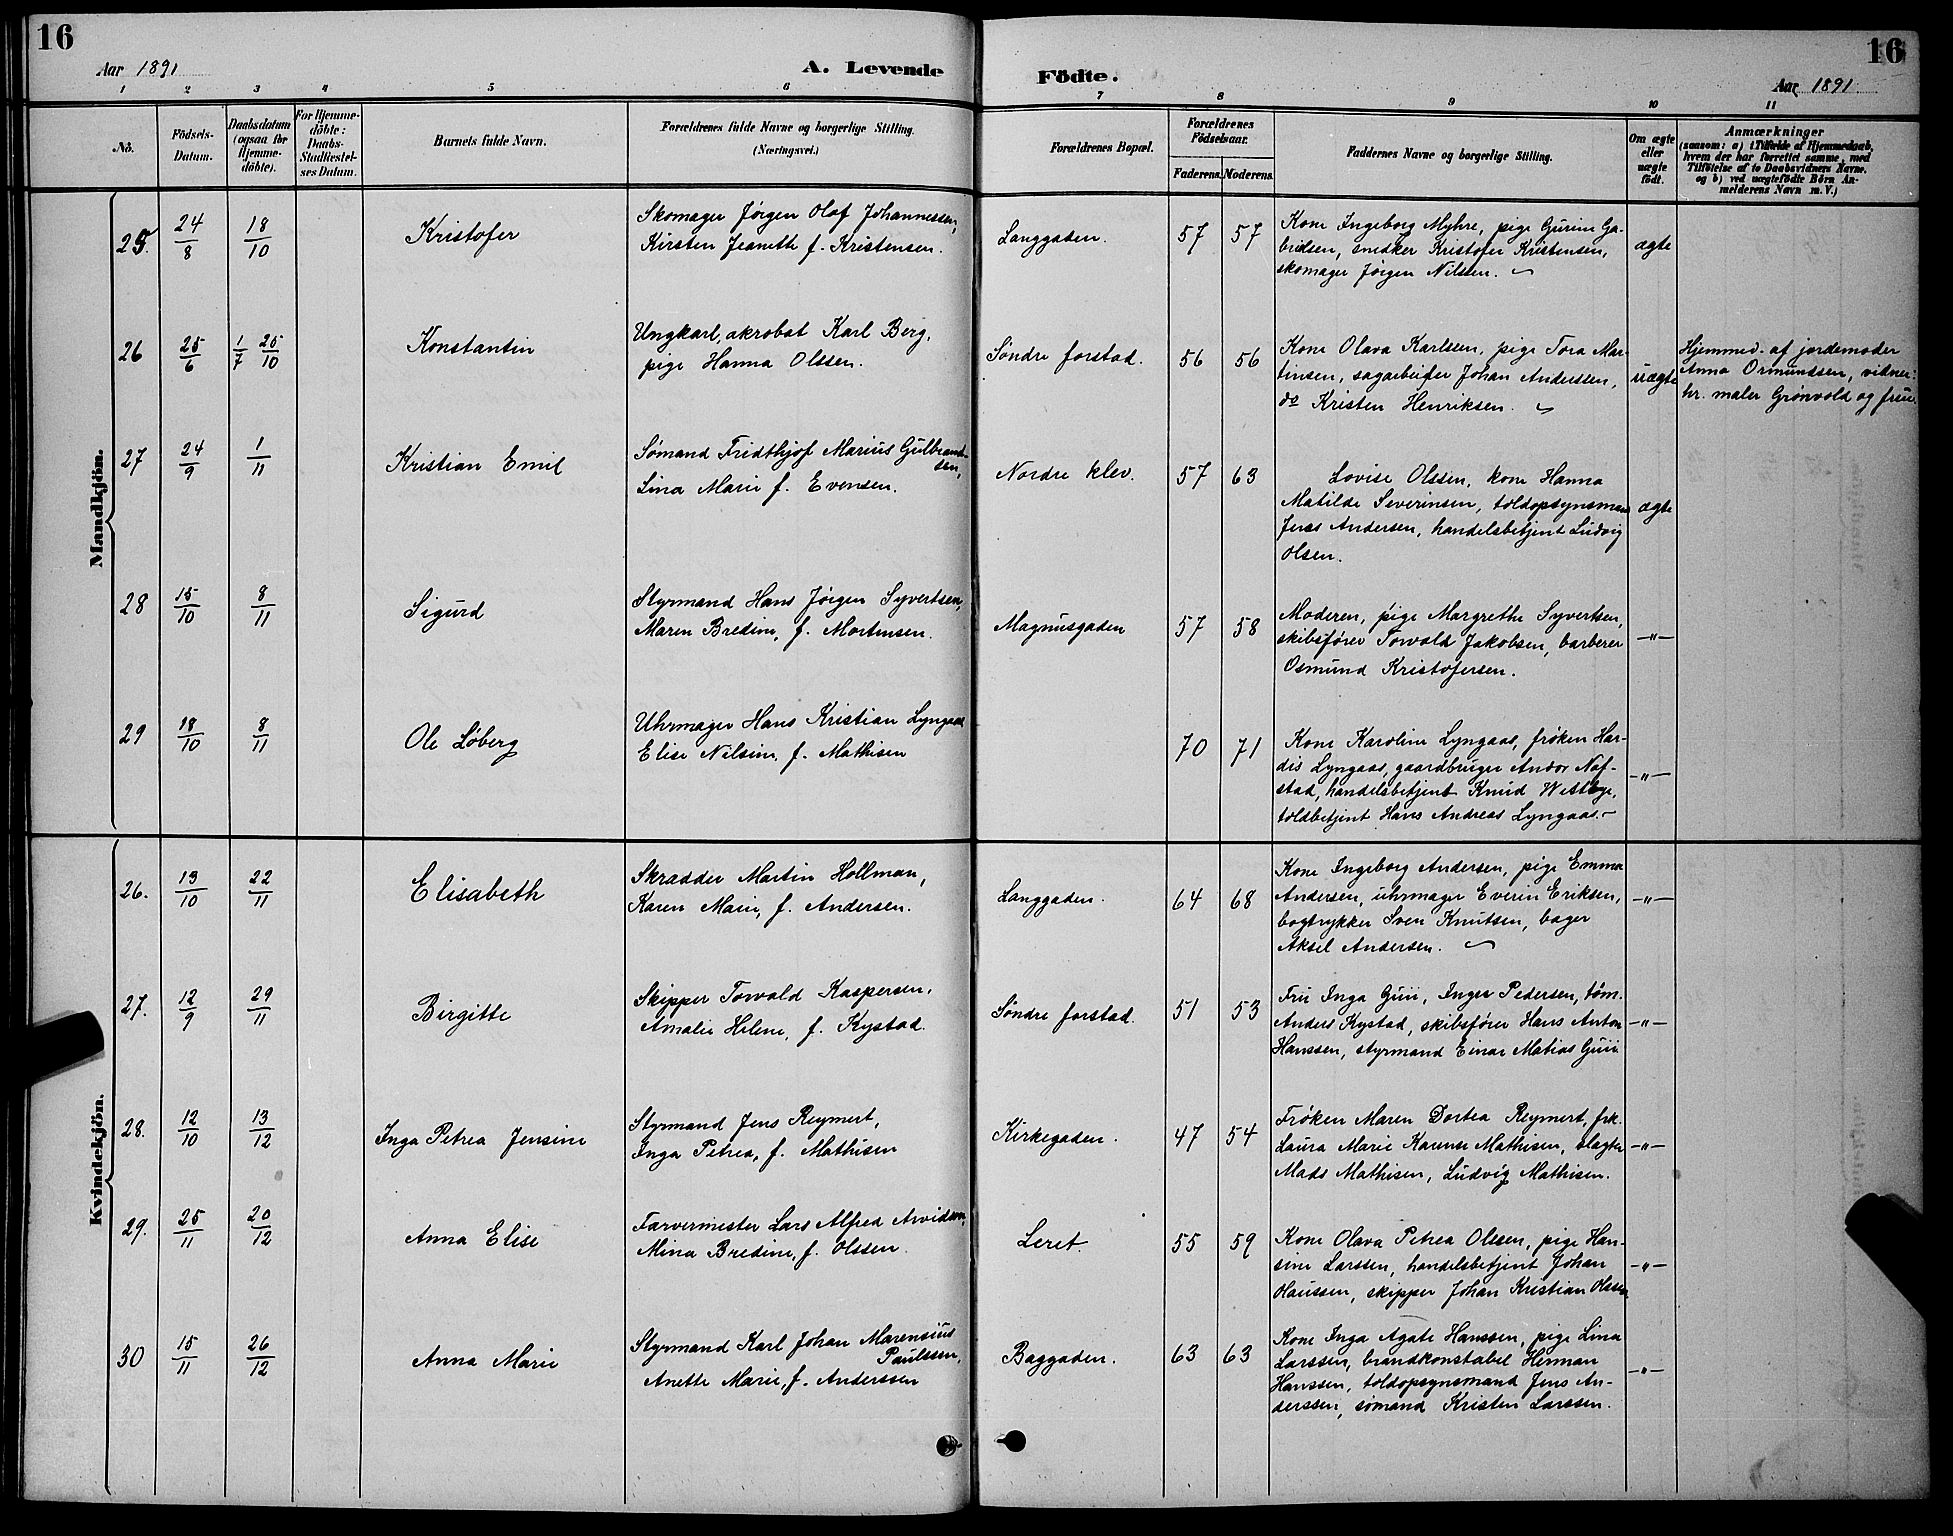 16
16
Aar 1891
A. Levende
Födte.
Aar 1891
1 2 3 4 5 6 7 8 9 10 11
No.
Födsels-
Datum.
Daabsdatum
(ogsaa for
Hjemme-
döbte).
For Hjemme-
döbte:
Daabs-
Stadfæstel-
ses Datum.
Barnets fulde Navn.
Forældrenes fulde Navne og borgerlige Stilling.
(Næringsvei.)
Forældrenes Bopæl.
Forældrenes
Födselsaar.
Faderens. Moderens.
Faddernes Navne og borgerlige Stilling.
Om ægte
eller
uægte
født.
Anmærkninger
(saasom: a) i Tilfælde af Hjemmedaab,
hvem der har forrettet samme, med
Tilföielse af to Daabsvidners Navne.
og b) ved uægtefödte Börn An-
melderens Navn m. V.)
Mandkjön.
25. 24/8 18/10 Kristofer
Skomager Jørgen Olaf Johannessen,
Kirsten Jeanette f. Kristensen.
Langgaden. 57 57
Kone Ingeborg Myhre, pige Gurine Ga-
brielsen, snedker Kristofer Kristensen,
skomager Jørgen Nilssen.
ægte
26 25/6 1/7 25/10 Konstantin
Ungkarl, akrobat Karl Berg,
pige Hanna Olssen.
Søndre forstad. 56 56
Kone Olava Karlsen, pige Tora Mar-
tinsen, sagarbeider Johan Anderssen,
do Kristen Henriksen.
uægte
Hjemmed. af jordemoder
Anna Ormundssen, vidner:
hr. maler Grønvold og frue.
27 24/9 1/11 Kristian Emil
Sømand Fridthjof Marius Gulbrand-
sen,
Lina Marie f. Evensen.
Nordre klev. 57 63
Lovise Olssen, kone Hanna
Matilde Severinsen, toldopsynsmand
Jens Andersen, handelsbetjent Ludvig
Olsen.
ægte
28 15/10 8/11 Sigurd
Styrmand Hans Jørgen Syvertsen,
Maren Bredine, f. Mortensen.
Magnusgaden 57 58
Moderen, pige Margrethe Syvertsen,
skibsfører Torvald Jakobsen, barberer
Osmund Kristofersen.
—"—
29 18/10 8/11 Ole Løberg
Uhrmager Hans Kristian Lyngaas
Elise Nilsine, f. Mathisen
70 71
Kone Karoline Lyngaas, frøken Har-
dis Lyngaas, gaardbruger Andor Naf-
stad, handelsbetjent Knud Westbye,
toldbetjent Hans Andreas Lyngaas.
—"—
Kvindekjön.
26. 13/10 22/11 Elisabeth
Skradder Martin Hollman,
Karen Marie, f. Andersen.
Langgaden. 64 68
Kone Ingeborg Andersen, pige Emma
Andersen, uhrmager Everin Eriksen,
bogtrykker Sven Knutsen, bager
Aksel Andersen.
—"—
27. 12/9 29/11 Birgitte
Skipper Torvald Kaspersen,
Amalie Helene, f. Kystad.
Søndre forstad. 51 53
Fru Inga Guii, Inger Pedersen, tøm.
Anders Kystad, skibsfører Hans Anton
Hanssen, styrmand Einar Matias Guii.
—"—
28. 12/10 13/12 Inga Petrea Jensine
Styrmand Jens Reymert,
Inga Petrea, f. Mathisen
Kirkegaden. 47 54
Frøken Maren Dortea Reymert, frk.
Laura Marie Karense Mathisen, slagter
Mads Mathisen, Ludvig Mathisen.
—"—
29. 25/11 20/12 Anna Elise
Farvermester Lars Alfred Arvidsen,
Mina Bredine, f. Olssen.
Leret. 55 59
Kone Olava Petrea Olssen, pige Han-
sine Larssen, handelsbetjent Johan
Olaussen, skipper Johan Kristian Olssen
—"—
30 15/11 26/12 Anna Marie
Styrmand Karl Johan Marensius
Paulssen,
Anette Marie, f. Anderssen
Baggaden. 63 63
Kone Inga Agate Hanssen, pige Lina
Larssen, brandkonstabel Herman
Hanssen, toldopsynsmand Jens An-
derssen, sømand Kristen Larssen.
—"—